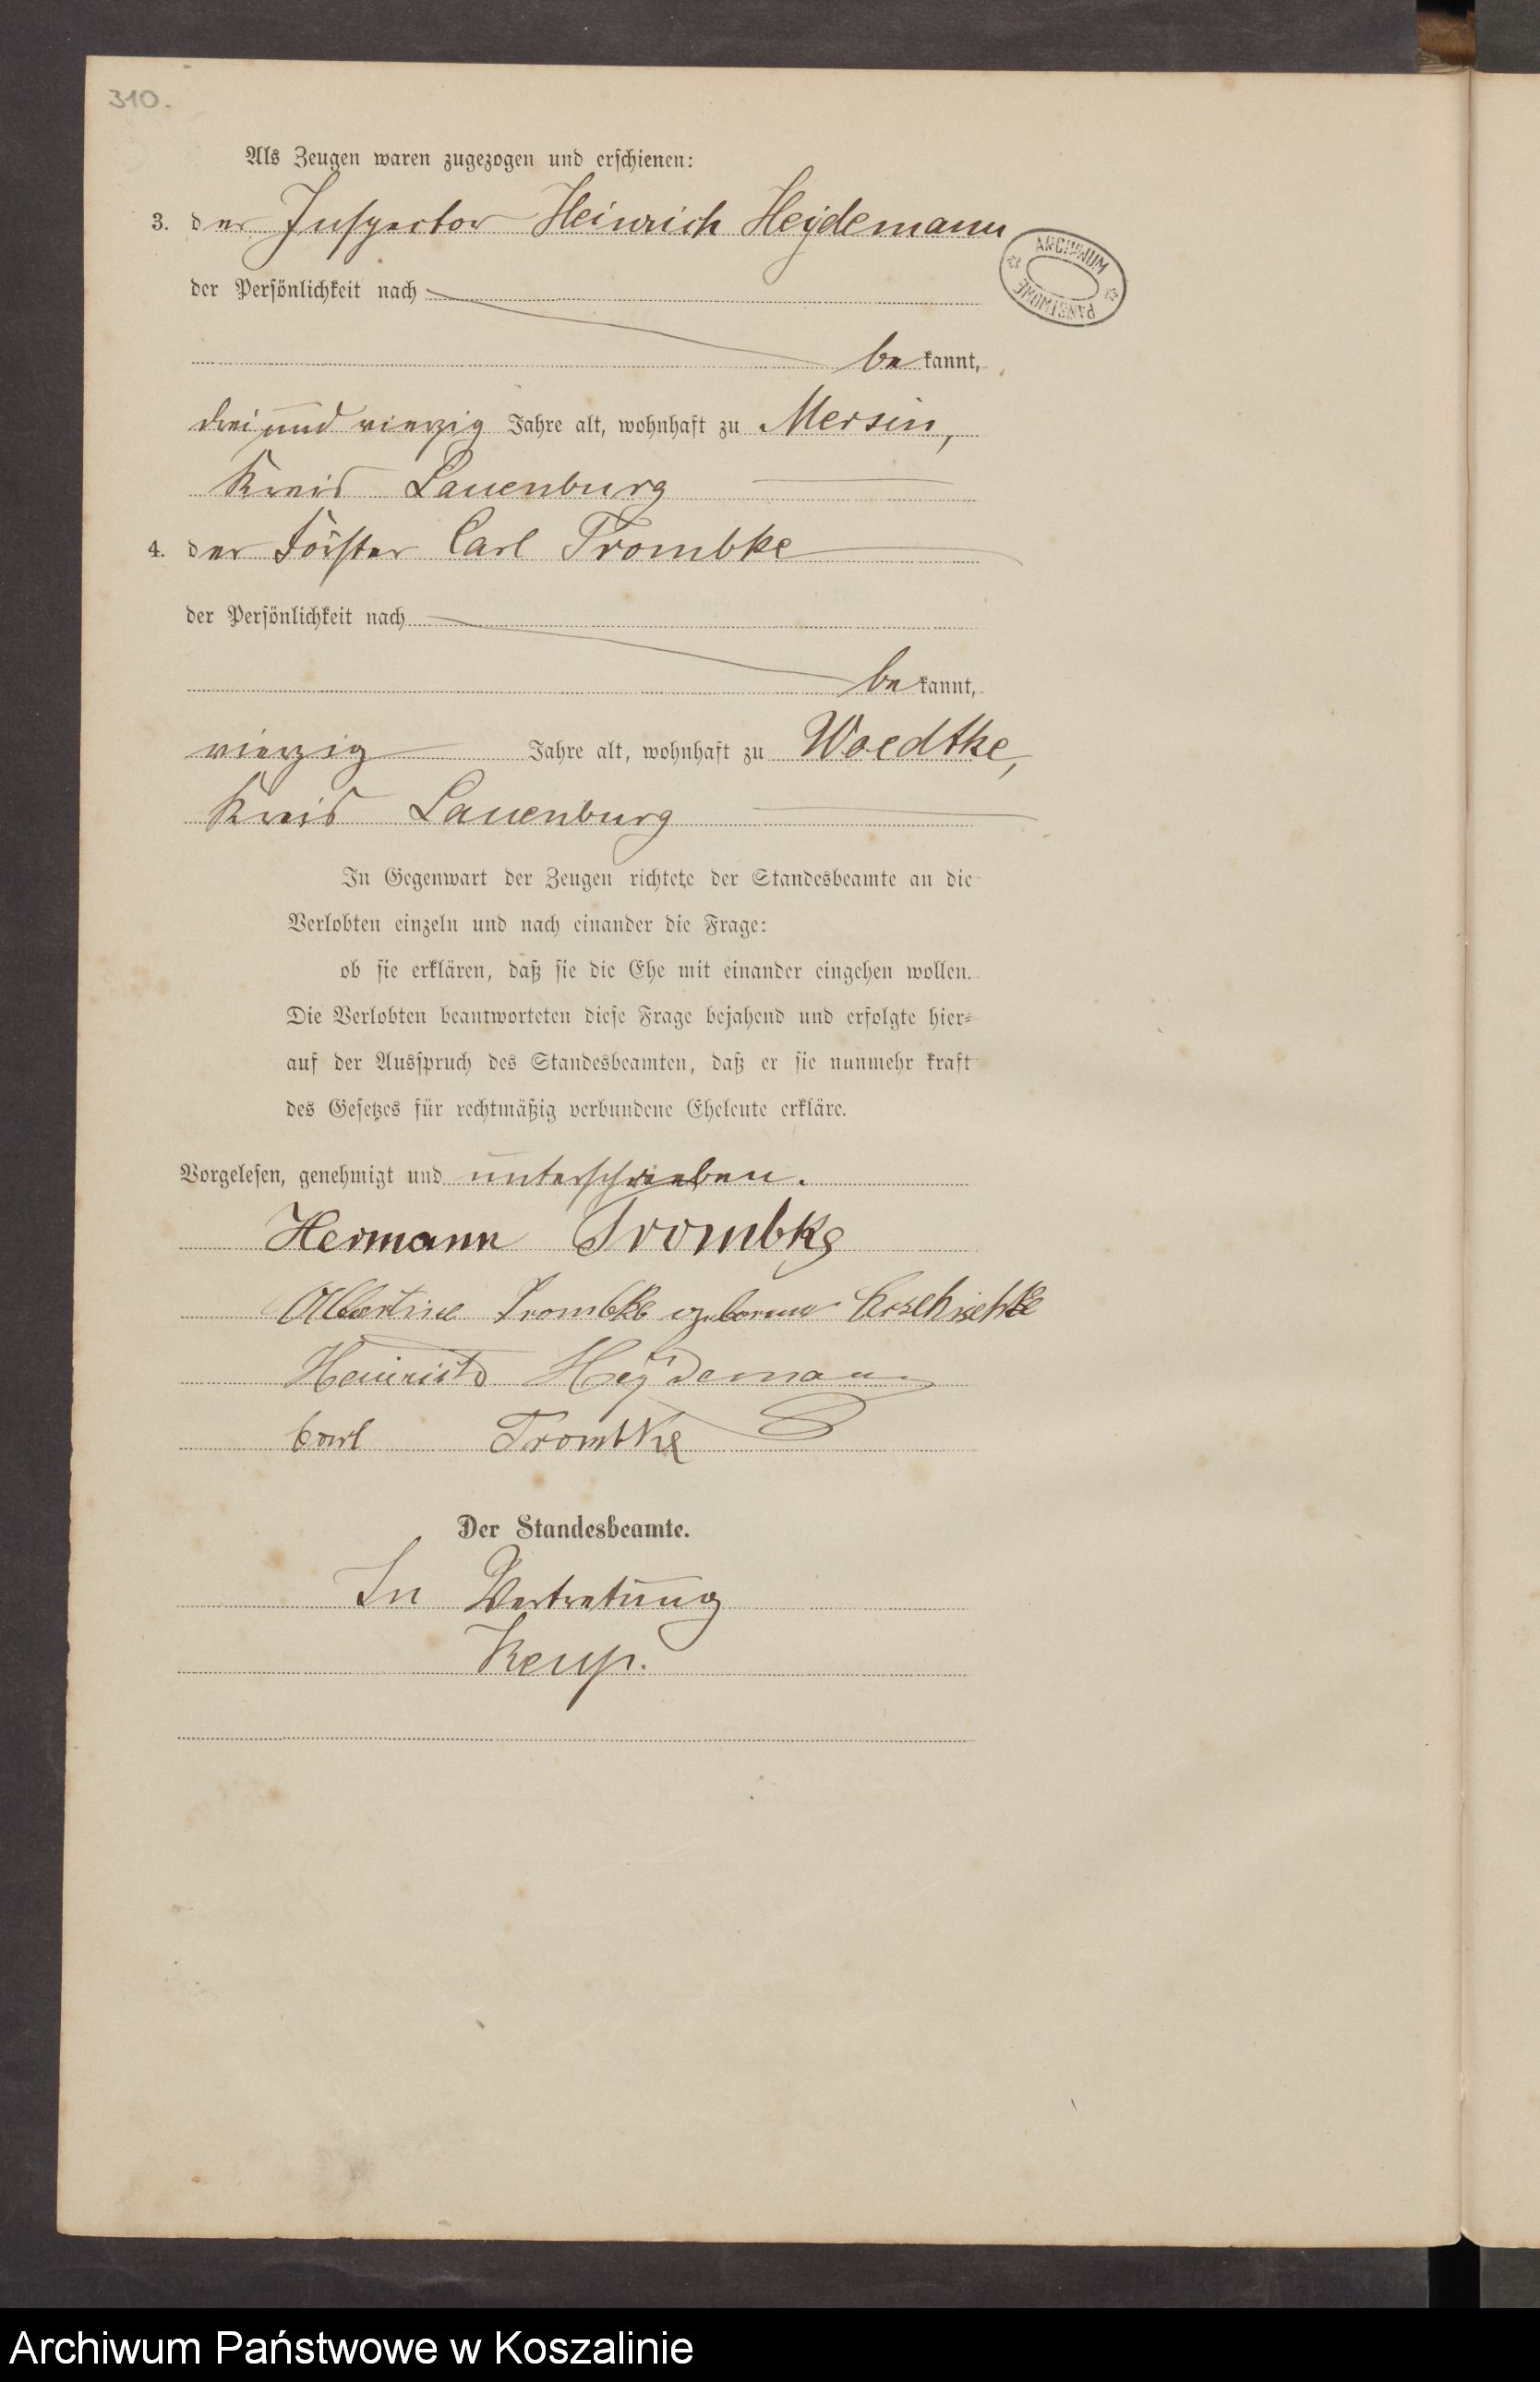 310.
Als Zeugen waren zugezogen und erschienen:
3. der Inspector Heinrich Heydemann
ARCHIWUM PAŃSTWOWE
der Persönlichkeit nach
bekannt,
drei und vierzig Jahre alt, wohnhaft zu Mersin,
Kreis Lauenburg
4. der Förster Carl Trombke
der Persönlichkeit nach
bekannt,
vierzig Jahre alt, wohnhaft zu Woedtke,
Kreis Lauenburg
In Gegenwart der Zeugen richtete der Standesbeamte an die
Verlobten einzeln und nach einander die Frage:
ob sie erklären, daß sie die Ehe mit einander eingehen wollen.
Die Verlobten beantworteten diese Frage bejahend und erfolgte hier=
auf der Ausspruch des Standesbeamten, daß er sie nunmehr kraft
des Gesetzes für rechtmäßig verbundene Eheleute erkläre.
Vorgelesen, genehmigt und unterschrieben.
Hermann Trombke
Albertine Trombke geborene
Heinrich Heydemann
Carl Trombke
Der Standesbeamte.
In Vertretung
Archiwum Państwowe w Koszalinie